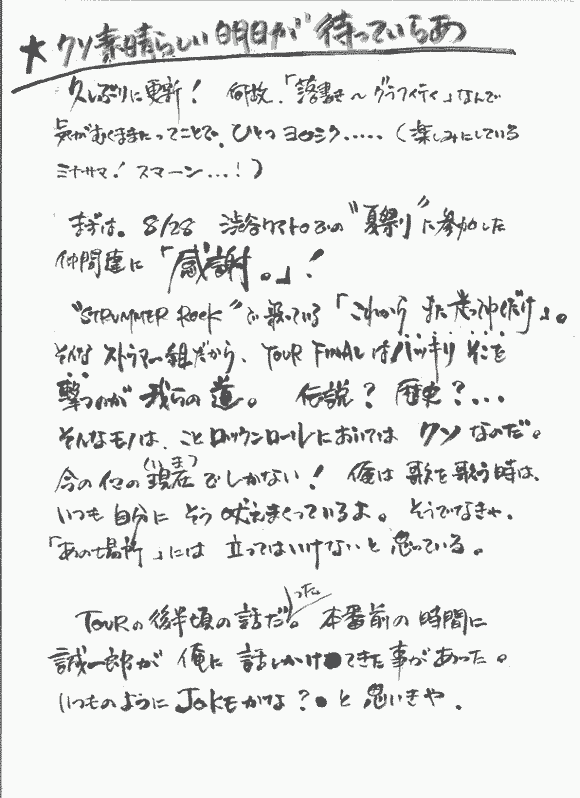 ★クソ素晴らしい明日が待っているらあ
久しぶりに更新! 何故、「落書き〜グラフィティ」なんで
気がむくままたってことで、ひとつヨロシク.....(楽しみにしている
ミナサマ!スマーン...!)
まずは。8/28 渋谷クアトロでの"夏祭り"に参加した
仲間達に「感謝。」!
"STRUMMER ROCK"で歌っている「これから また走って行くだけ」。
そんなストラマー組だから、TOUR FINALはバッキリそこを
撃つのが我らの道。 伝説? 歴史?...
そんなモノは、ことロックンロールにおいてはクソなのだ。
今のイマの現在(いま)でしかない! 俺は歌を歌う時は、
いつも自分にそう吠えまくっているよ。そうでなきゃ、
「あの場所」には 立ってはいけないと思っている。
TOURの後半頃の話だった。本番前の時間に
誠一郎が俺に話しかけてきた事があった。
いつものようにJOKEかな?と思いきや、